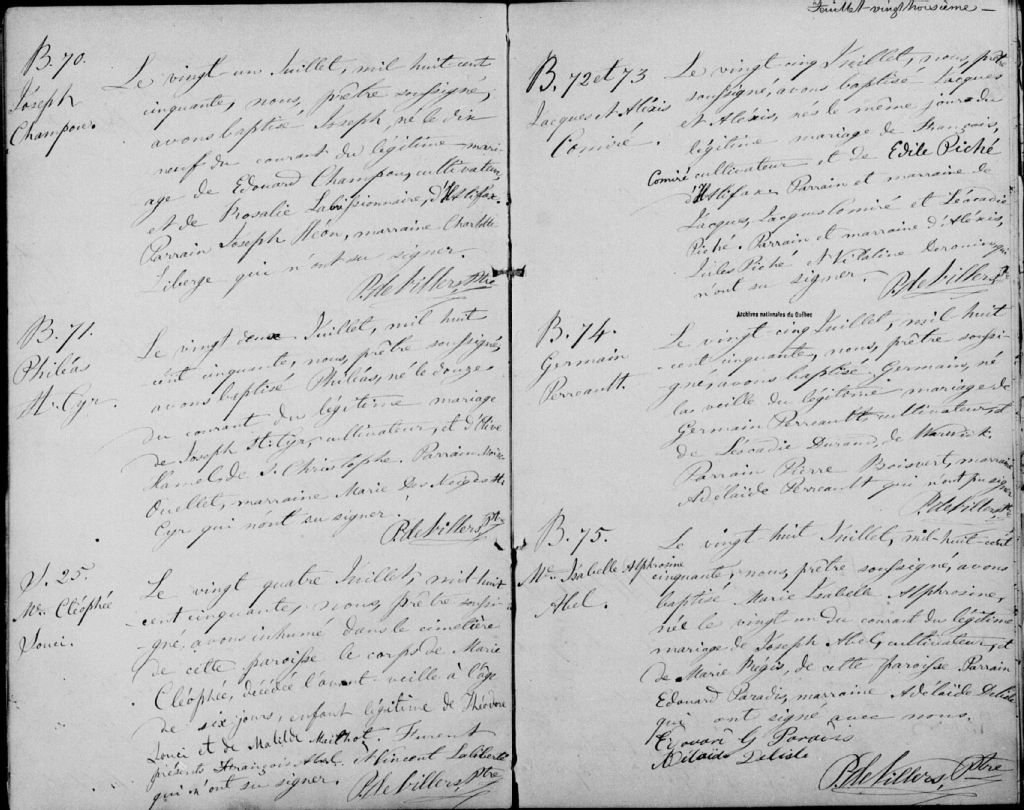 B. 70.
Joseph
Champoux.
Le vingt un Juillet, mil huit cent
cinquante, nous, prêtre soussigné,
avons baptisé Joseph, né le dix
neuf du courant du légitime mari-
age de Edouard Champoux, cultivateur,
et de Rosalie Labissionnaire, d'Halifax.
Parrain Joseph Héon, marraine Charlotte
Liberge qui n'ont su signer.
P. de Villers, Ptre
B. 71.
Philéas
St. Cyr.
Le vingt deux Juillet, mil huit
cent cinquante, nous, prêtre soussigné,
avons baptisé Philéas, né le douze
du courant du légitime mariage
de Joseph St. Cyr, cultivateur, et d'Olive
Hamel, de S. Christophe. Parrain Moïse
Ouellet, marraine Marie Des Neiges St.
Cyr qui n'ont su signer.
P. de Villers, Ptre
S. 25.
Me. Cléophée
Louci.
Le vingt quatre Juillet, mil huit
cent cinquante, nous, prêtre soussi-
gné, avons inhumé dans le cimetière
de cette paroisse le corps de Marie
Cléophée, décédée l'avant veille à l'âge
de six jours, enfant légitime de Théodore
Louci et de Matilde Mailhot. Furent
présents François Abel, Vincent Laliberté
qui n'ont su signer.
P. de Villers, Ptre
Feuillet vingt troisième —
B. 72 et 73
Jacques et Aléxis
Comiré.
Le vingt cinq Juillet, nous, prêtre
soussigné, avons baptisé Jacques
et Aléxis, nés le même jour du
légitime mariage de François,
Comiré cultivateur et de Edile Piché
d'Halifax. Parrain et marraine de
Jacques, Jacques Comiré et Léocadie
Piché. Parrain et marraine d'Aléxis,
Jules Piché et Vitaline qui
n'ont su signer.
P. de Villers, Ptre
Archives nationales du Québec
B. 74.
Germain
Perreault.
Le vingt cinq Juillet, mil huit
cent cinquante, nous, prêtre soussi-
gné, avons baptisé Germain, né
la veille du légitime mariage de
Germain Perreault, cultivateur, et
de Léocadie Durand, de Warwick.
Parrain Pierre Boisvert, marraine
Adélaïde Perreault qui n'ont pu signer
P. de Villers, Ptre
B. 75.
Me. Isabelle Alphrosine
Abel.
Le vingt huit Juillet, mil huit cent
cinquante, nous, prêtre soussigné, avons
baptisé Marie Isabelle Alphrosine,
née le vingt un du courant du légitime
mariage de Joseph Abel, cultivateur, et
de Marie Regis, de cette paroisse. Parrain
Edouard Paradis, marraine Adélaïde Delisle
qui ont signé avec nous.
Edouard G Paradis
Adelaide Delisle
P. de Villers, Ptre